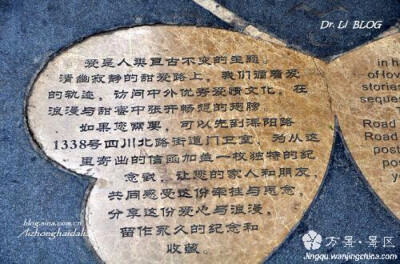 Dr. Li BLOG
爱是人类亘古不变的主题
清幽寂静的甜爱路上，我们循着爱
的轨迹，访问中外优秀爱情文化，在
浪漫与甜蜜中张开畅想的翅膀
如果您需要，可以先到溧阳路
1338号四川北路街道门卫室，为从这
里寄出的信函加盖一枚独特的纪
念戳，让您的家人和朋友，
共同感受这份牵挂与思念，
分享这份爱心与浪漫，
留作永久的纪念和
收藏
in h
of lov
stories
seque
Road
Road
post
po
blog.sina.com.cn
lizhonghaidali
万景·景区
Jingqu.wanjingchina.com